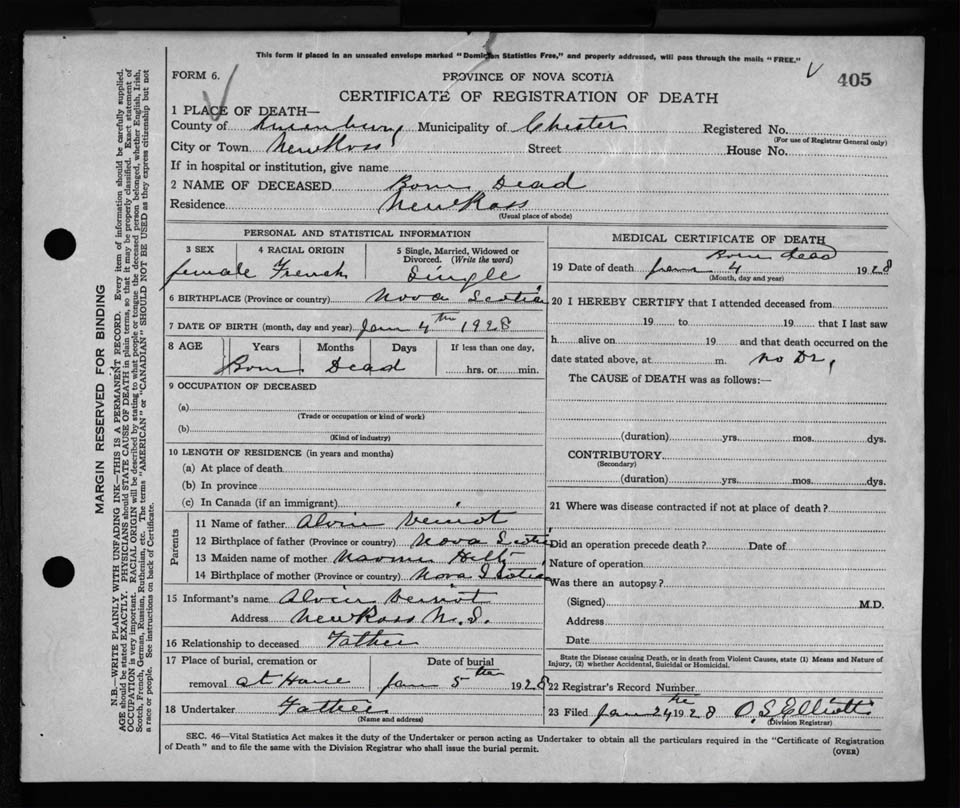 This form if placed in an unsealed envelope marked "Dominion Statistics Free," and properly addressed, will pass through the mails "FREE."
FORM 6.
PROVINCE OF NOVA SCOTIA
405
CERTIFICATE OF REGISTRATION OF DEATH
1 PLACE OF DEATH—
County of Lunenburg Municipality of Chester Registered No.
(For use of Registrar General only)
City or Town New Ross Street House No.
If in hospital or institution, give name
2 NAME OF DECEASED Born Dead
Residence New Ross
(Usual place of abode)
PERSONAL AND STATISTICAL INFORMATION
3 SEX 4 RACIAL ORIGIN 5 Single, Married, Widowed or Divorced. (Write the word)
female French Single
6 BIRTHPLACE (Province or country) Nova Scotia
7 DATE OF BIRTH (month, day and year) Jan 4th 1928
8 AGE Years Months Days If less than one day,
Born Dead hrs. or min.
9 OCCUPATION OF DECEASED
(a)
(Trade or occupation or kind of work)
(b)
(Kind of industry)
10 LENGTH OF RESIDENCE (in years and months)
(a) At place of death
(b) In province
(c) In Canada (if an immigrant)
Parents
11 Name of father Alvin Veniot
12 Birthplace of father (Province or country) Nova Scotia
13 Maiden name of mother Naomi
14 Birthplace of mother (Province or country) Nova Scotia
15 Informant's name Alvin Veniot
Address New Ross N.S.
16 Relationship to deceased Father
17 Place of burial, cremation or Date of burial
removal at Home Jan 5th 1928
18 Undertaker Father
(Name and address)
MEDICAL CERTIFICATE OF DEATH
Born dead
19 Date of death Jan 4 1928
(Month, day and year)
20 I HEREBY CERTIFY that I attended deceased from
19 to 19 that I last saw
h alive on 19 and that death occurred on the
date stated above, at m. no Dr,
The CAUSE of DEATH was as follows:—
(duration) yrs. mos. dys.
CONTRIBUTORY
(Secondary)
(duration) yrs. mos. dys.
21 Where was disease contracted if not at place of death?
Did an operation precede death? Date of
Nature of operation
Was there an autopsy?
(Signed) M.D.
Address
Date
State the Disease causing Death, or in death from Violent Causes, state (1) Means and Nature of
Injury, (2) whether Accidental, Suicidal or Homicidal.
22 Registrar's Record Number
23 Filed Jan 24th 1928 O. S Elliott
(Division Registrar)
SEC. 46—Vital Statistics Act makes it the duty of the Undertaker or person acting as Undertaker to obtain all the particulars required in the "Certificate of Registration
of Death" and to file the same with the Division Registrar who shall issue the burial permit.
(OVER)
MARGIN RESERVED FOR BINDING
N.B.—WRITE PLAINLY WITH UNFADING INK—THIS IS A PERMANENT RECORD. Every item of information should be carefully supplied.
AGE should be stated EXACTLY. PHYSICIANS should STATE CAUSE OF DEATH in plain terms, so that it may be properly classified. Exact statement of
OCCUPATION is very important. RACIAL ORIGIN will be described by stating to what people or tongue the deceased person belonged, whether English, Irish,
Scotch, French, German, Russian, Ruthenian, etc. The terms "AMERICAN" or "CANADIAN" SHOULD NOT BE USED as they express citizenship but not
a race or people. See instructions on back of Certificate.